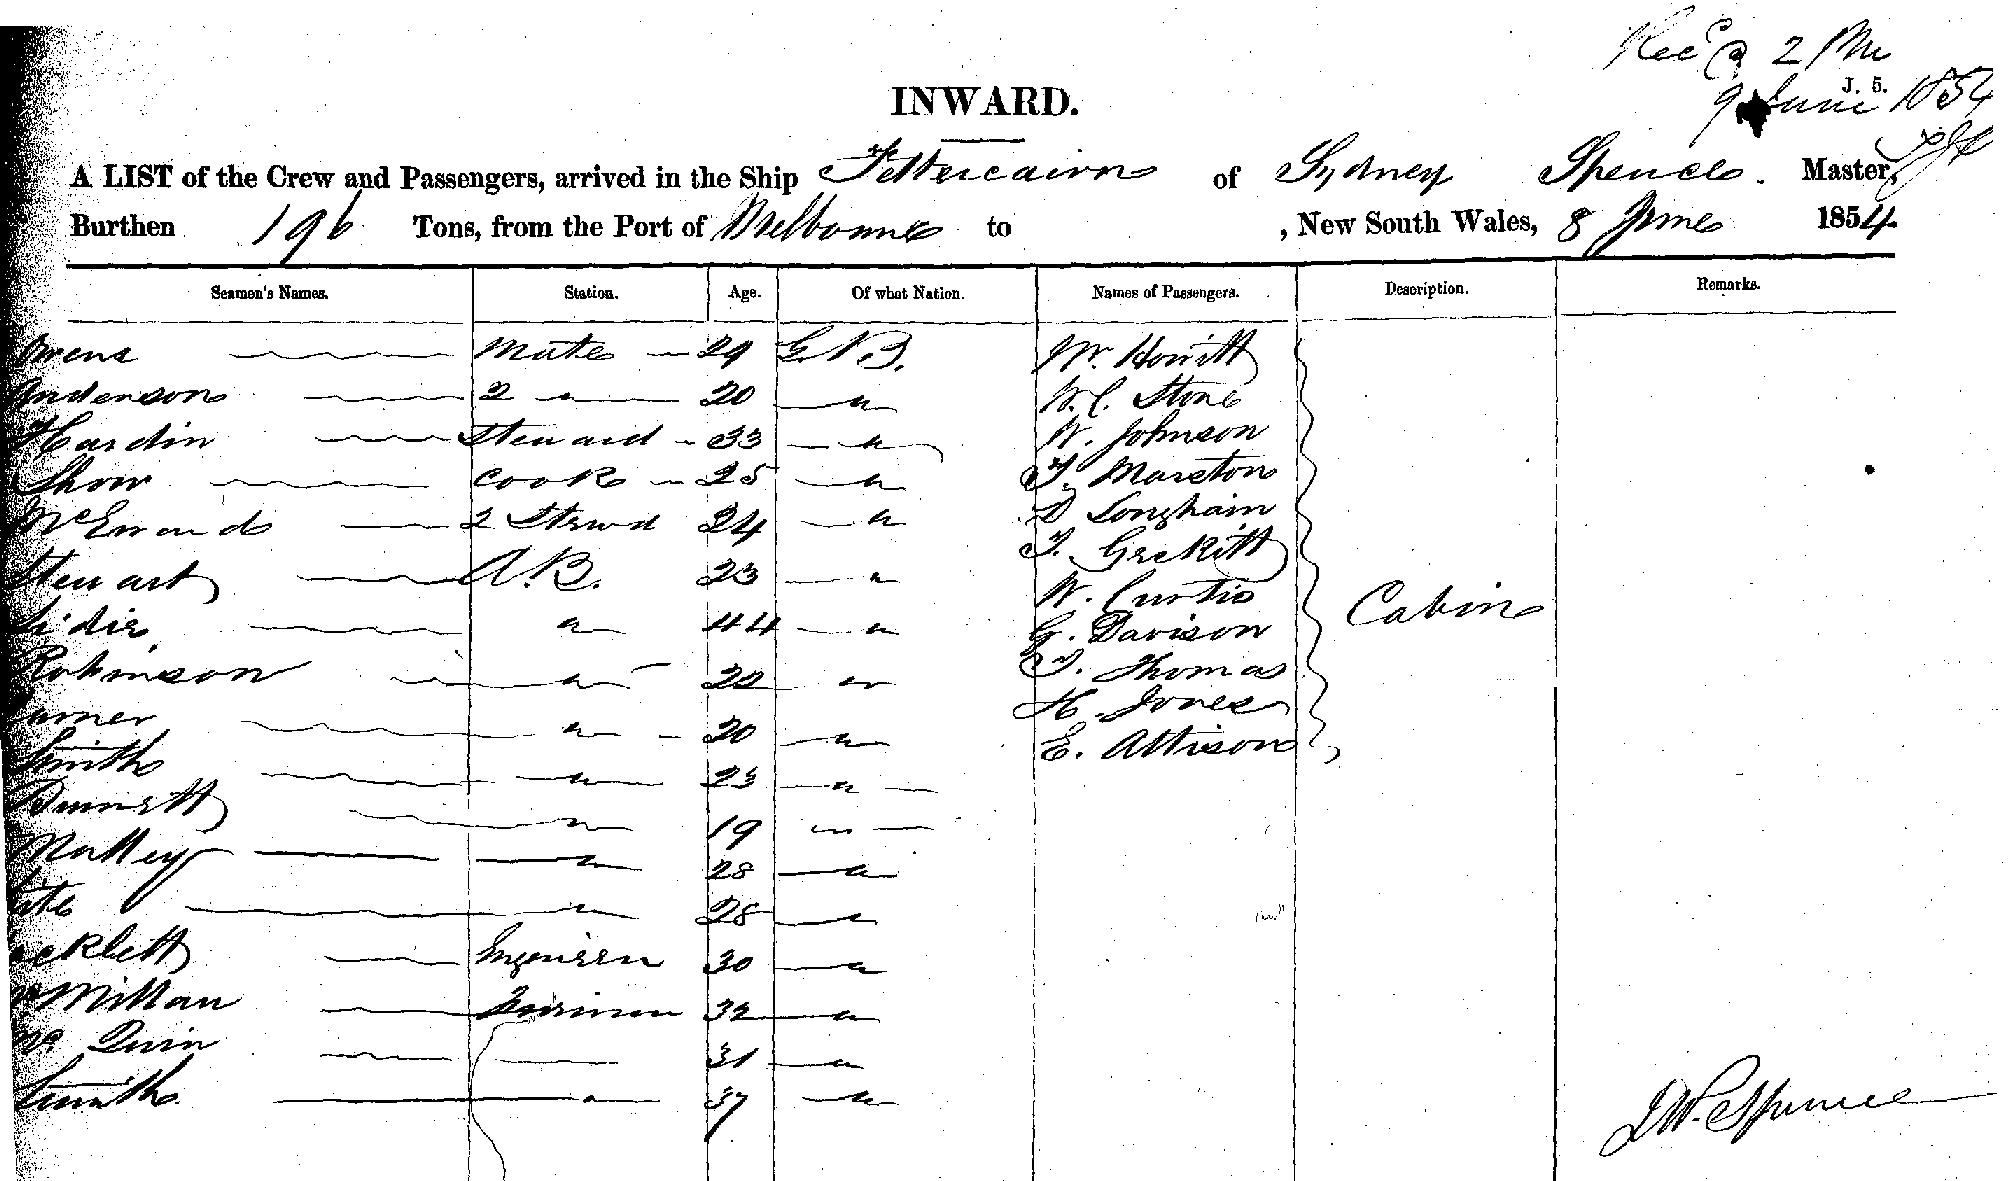 Rec'd 2 PM
J. 5.
9 June 1854
INWARD.
A LIST of the Crew and Passengers, arrived in the Ship Fettercairn of Sydney Spence. Master,
Burthen 196 Tons, from the Port of Melbourne to , New South Wales, 8 June 1854
Seamen's Names. Station. Age. Of what Nation. Names of Passengers. Description. Remarks.
Owens Mate 29 G B. W. Howitt
Anderson 2 " 20 " W. C. Stone
Hardin Steward 33 " W. Johnson
Show Cook 25 " T. Marston
2 Stewd 24 " D Longhain
Stewart A.B. 23 " T. Greckitt
" 44 " W. Curtis
Cabin
Robinson " 20 " G. Davison
" 20 " T. Thomas
Smith " 23 " H. Jones
Bunnett " 19 " E. Attison
Malley " 28 "
" 28 "
Engineer 30 "
McMillan Fireman 32 "
Mc Quin 31 "
Smith " 37 "
J W. Spence